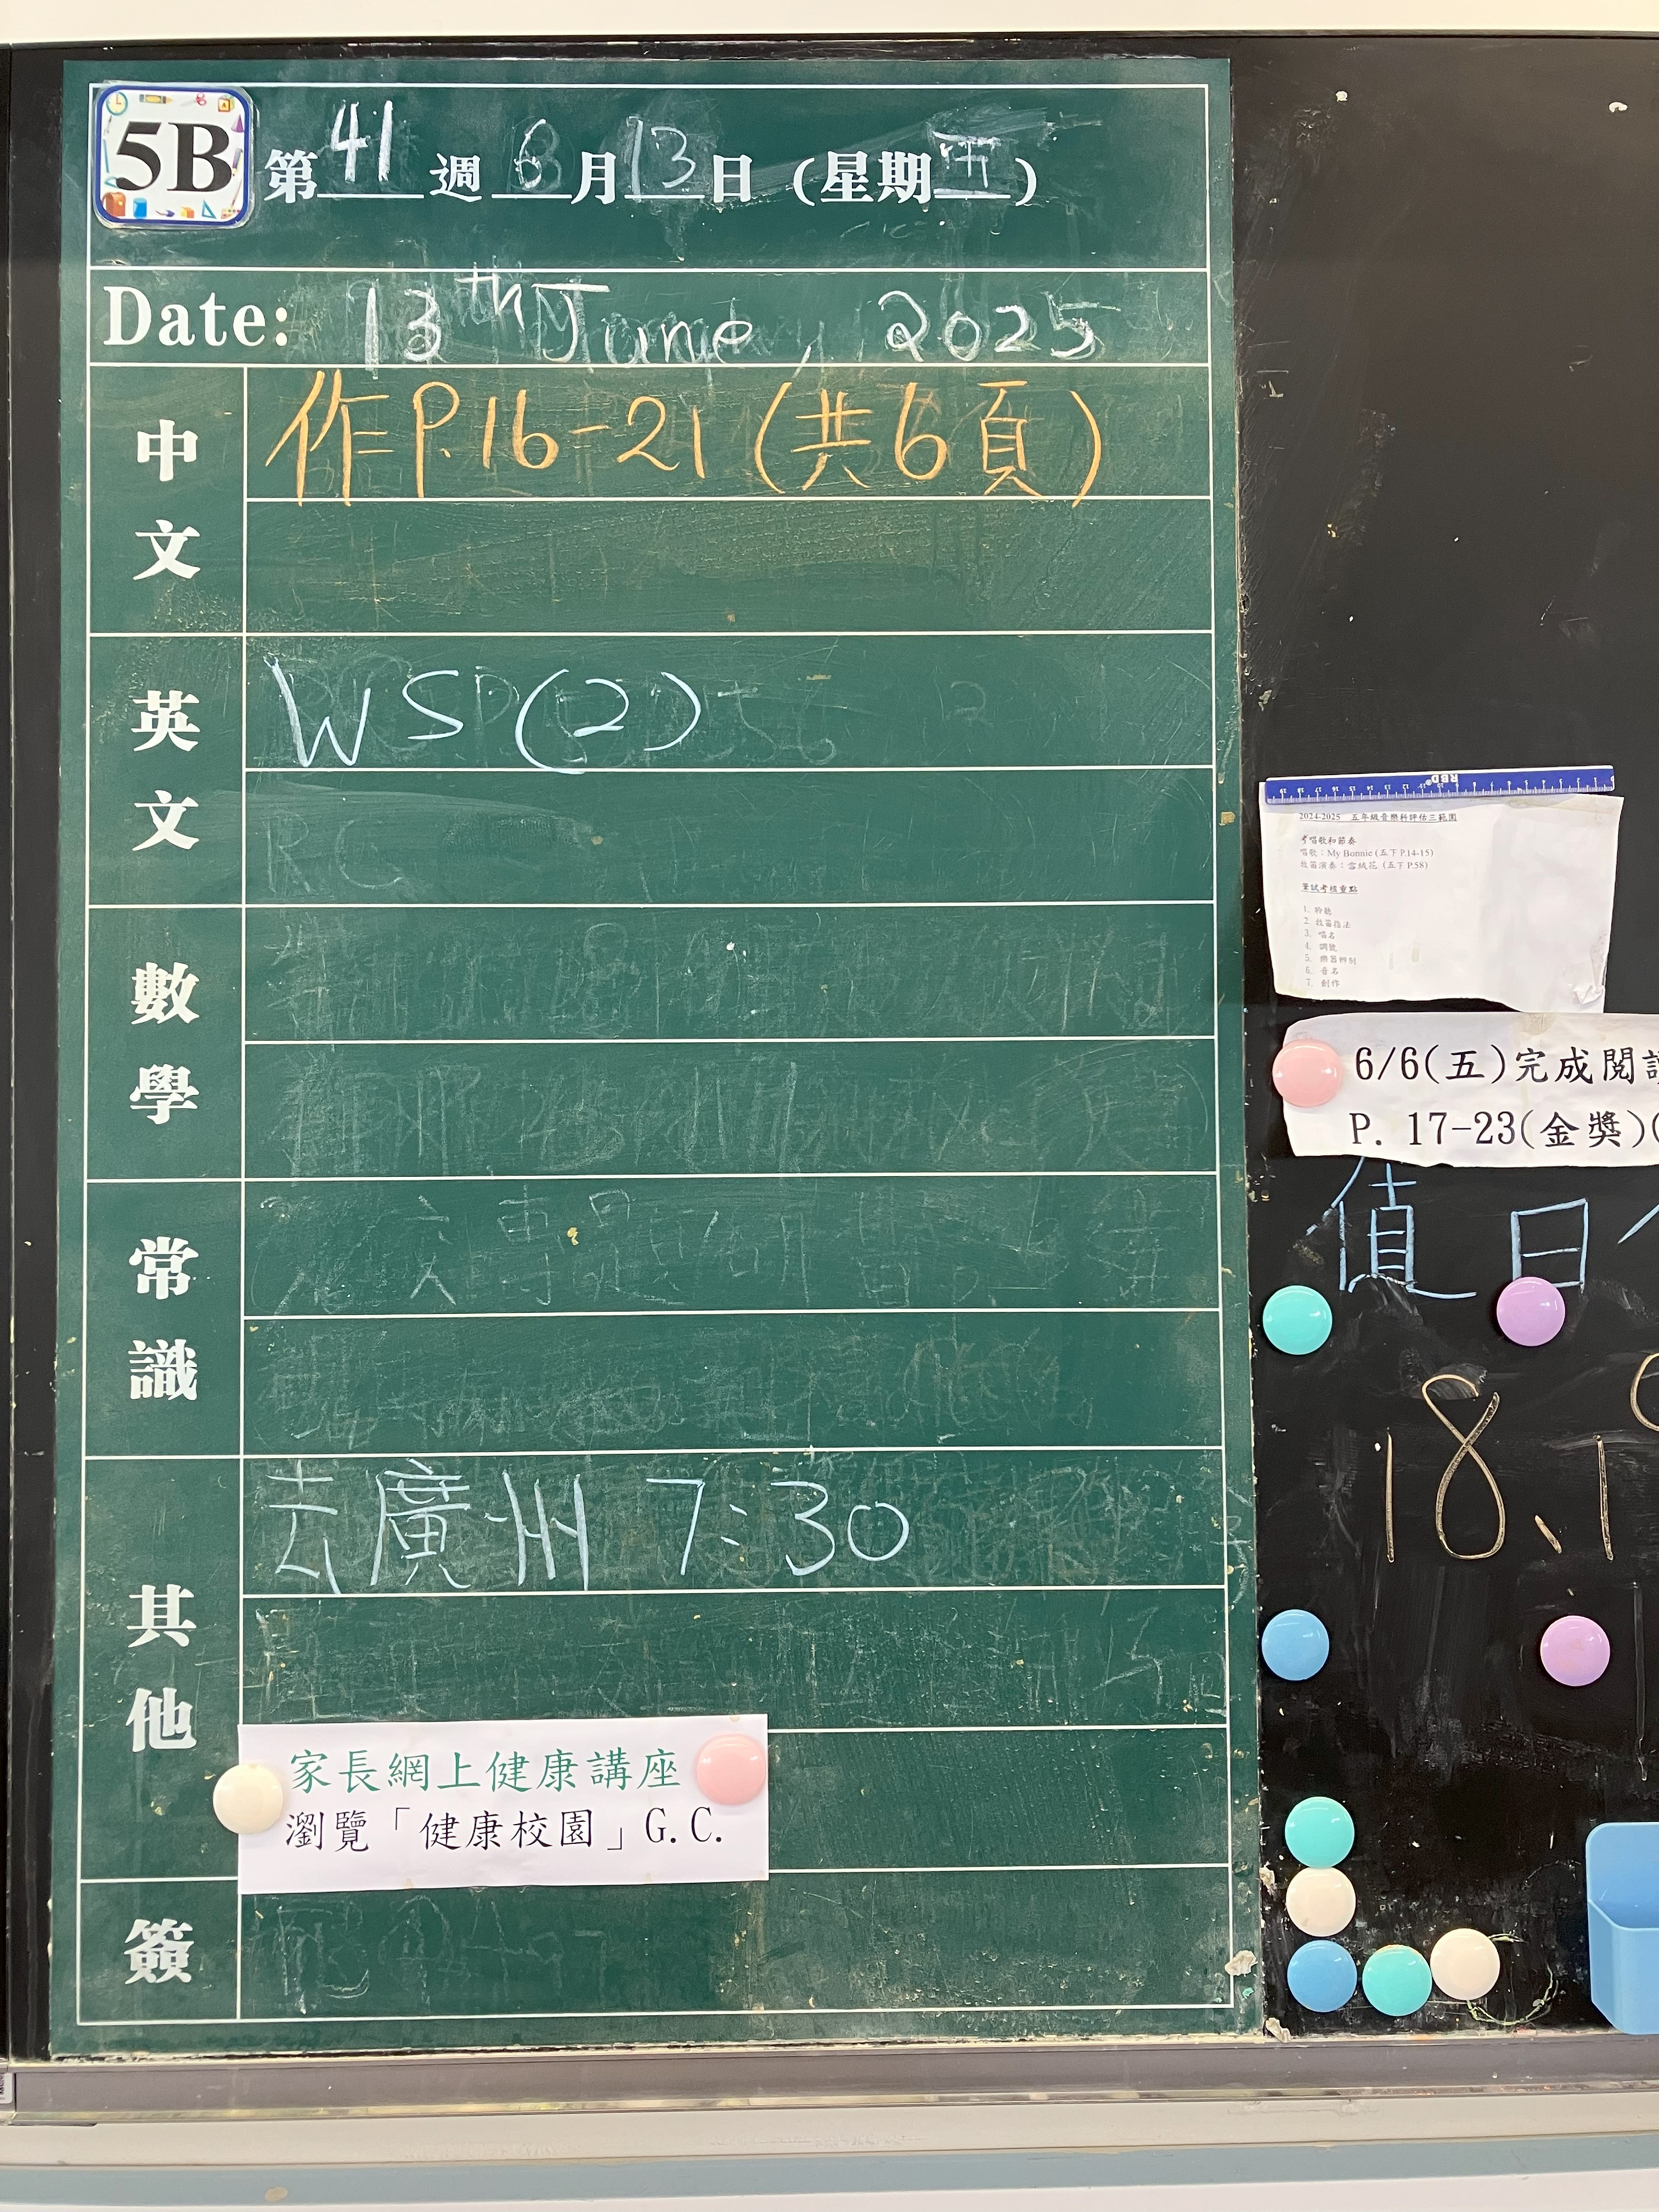 5B 第41週6月13日(星期五)
Date: 13th June, 2025
中文
作P.16-21(共6頁)
英文
WS(2)
數學
常識
其他
去廣州 7:30
家長網上健康講座
瀏覽「健康校園」G.C.
簽
RBD
2024-2025 五年級音樂科評估三範圍
考唱歌和節奏
唱歌:My Bonnie(五下P.14-15)
牧笛演奏:雪絨花(五下P.58)
筆試考核重點
1. 聆聽
2. 牧笛指法
3. 唱名
4. 調號
5. 樂器辨別
6. 音名
7. 創作
6/6(五)完成閱
P. 17-23(金獎)(
值日
18、1